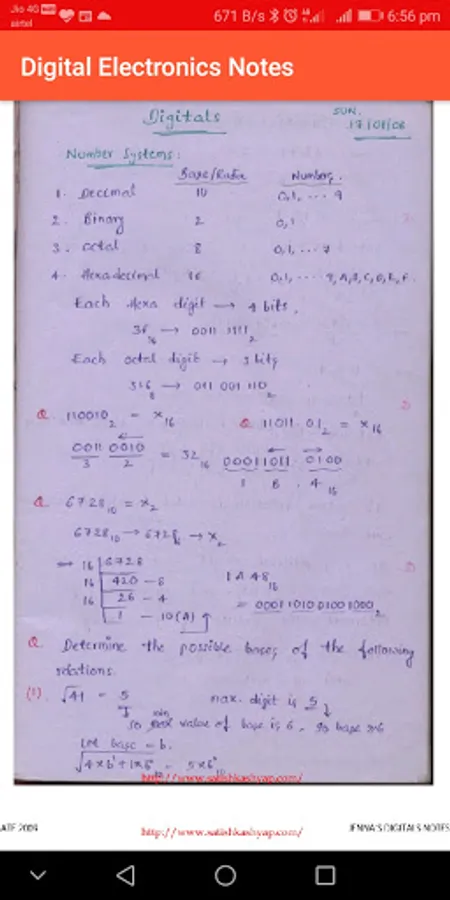 Jio 4G VoWiFi
airtel
671 B/s
6:56 pm
Digital Electronics Notes
Digitals
SUN.
17/01/08
Number Systems:
Base/Radix Numbers.
1. Decimal 10 0,1, ... 9
2. Binary 2 0,1
3. Octal 8 0,1, ... 7
4. Hexadecimal 16 0,1, ... 9, A, B, C, D, E, F.
Each Hexa digit → 4 bits,
3F₁₆ → 0011 1111₂
Each octal digit → 3 bits
316₈ → 011 001 110₂
Q. 110010₂ = X₁₆ Q. 11011.01₂ = X₁₆
0011 0010 = 32₁₆ 00011011.0100
3 2 1 B . 4₁₆
Q. 6728₁₀ = X₂
6728₁₀ → 6728₁₆ → X₂
⇒ 16 6728
16 420 - 8 1A48₁₆
16 26 - 4 = 0001101001001000₂
1 - 10(A)
Q. Determine the possible bases of the following
relations.
(1) √41 = 5 max. digit is 5
so min value of base is 6. so base ≥6
Let base = b.
√4×b¹+1×b⁰ = 5×b⁰
http://www.satishkashyap.com/
ATE 2009
http://www.satishkashyap.com/
JENNA'S DIGITALS NOTES